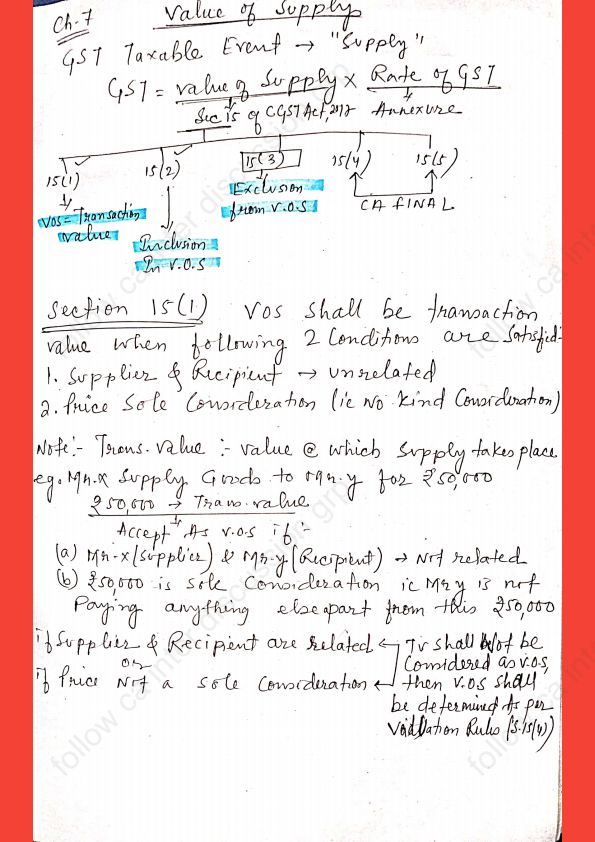 Ch-7 Value of Supply
GST Taxable Event → "Supply"
GST = Value of Supply × Rate of GST
Sec 15 of CGST Act, 2017 Annexure
15(1) 15(2) 15(3) 15(4) 15(5)
VOS = Transaction Value
Inclusion In V.O.S
Exclusion from V.O.S
CA FINAL
Section 15(1) VOS shall be transaction
value when following 2 Conditions are Satisfied:-
1. Supplier & Recipient → unrelated
2. Price Sole Consideration (ie No Kind Consideration)
Note:- Trans. value :- value @ which supply takes place
eg. Mr. x Supply Goods to Mr. y for ₹50,000
₹50,000 → Trans. value
Accept As V.O.S if :-
(a) Mr-x (supplier) & Mr-y (Recipient) → Not related
(b) ₹50,000 is sole Consideration ie Mr y is not
Paying anything else apart from this ₹50,000
if Supplier & Recipient are related
or
if Price Not a sole Consideration
TV shall Not be
Considered as V.O.S,
then V.O.S shall
be determined As per
Valuation Rules (S.15(4))
follow ca inter discussion grp
follow ca inter
follow ca inter